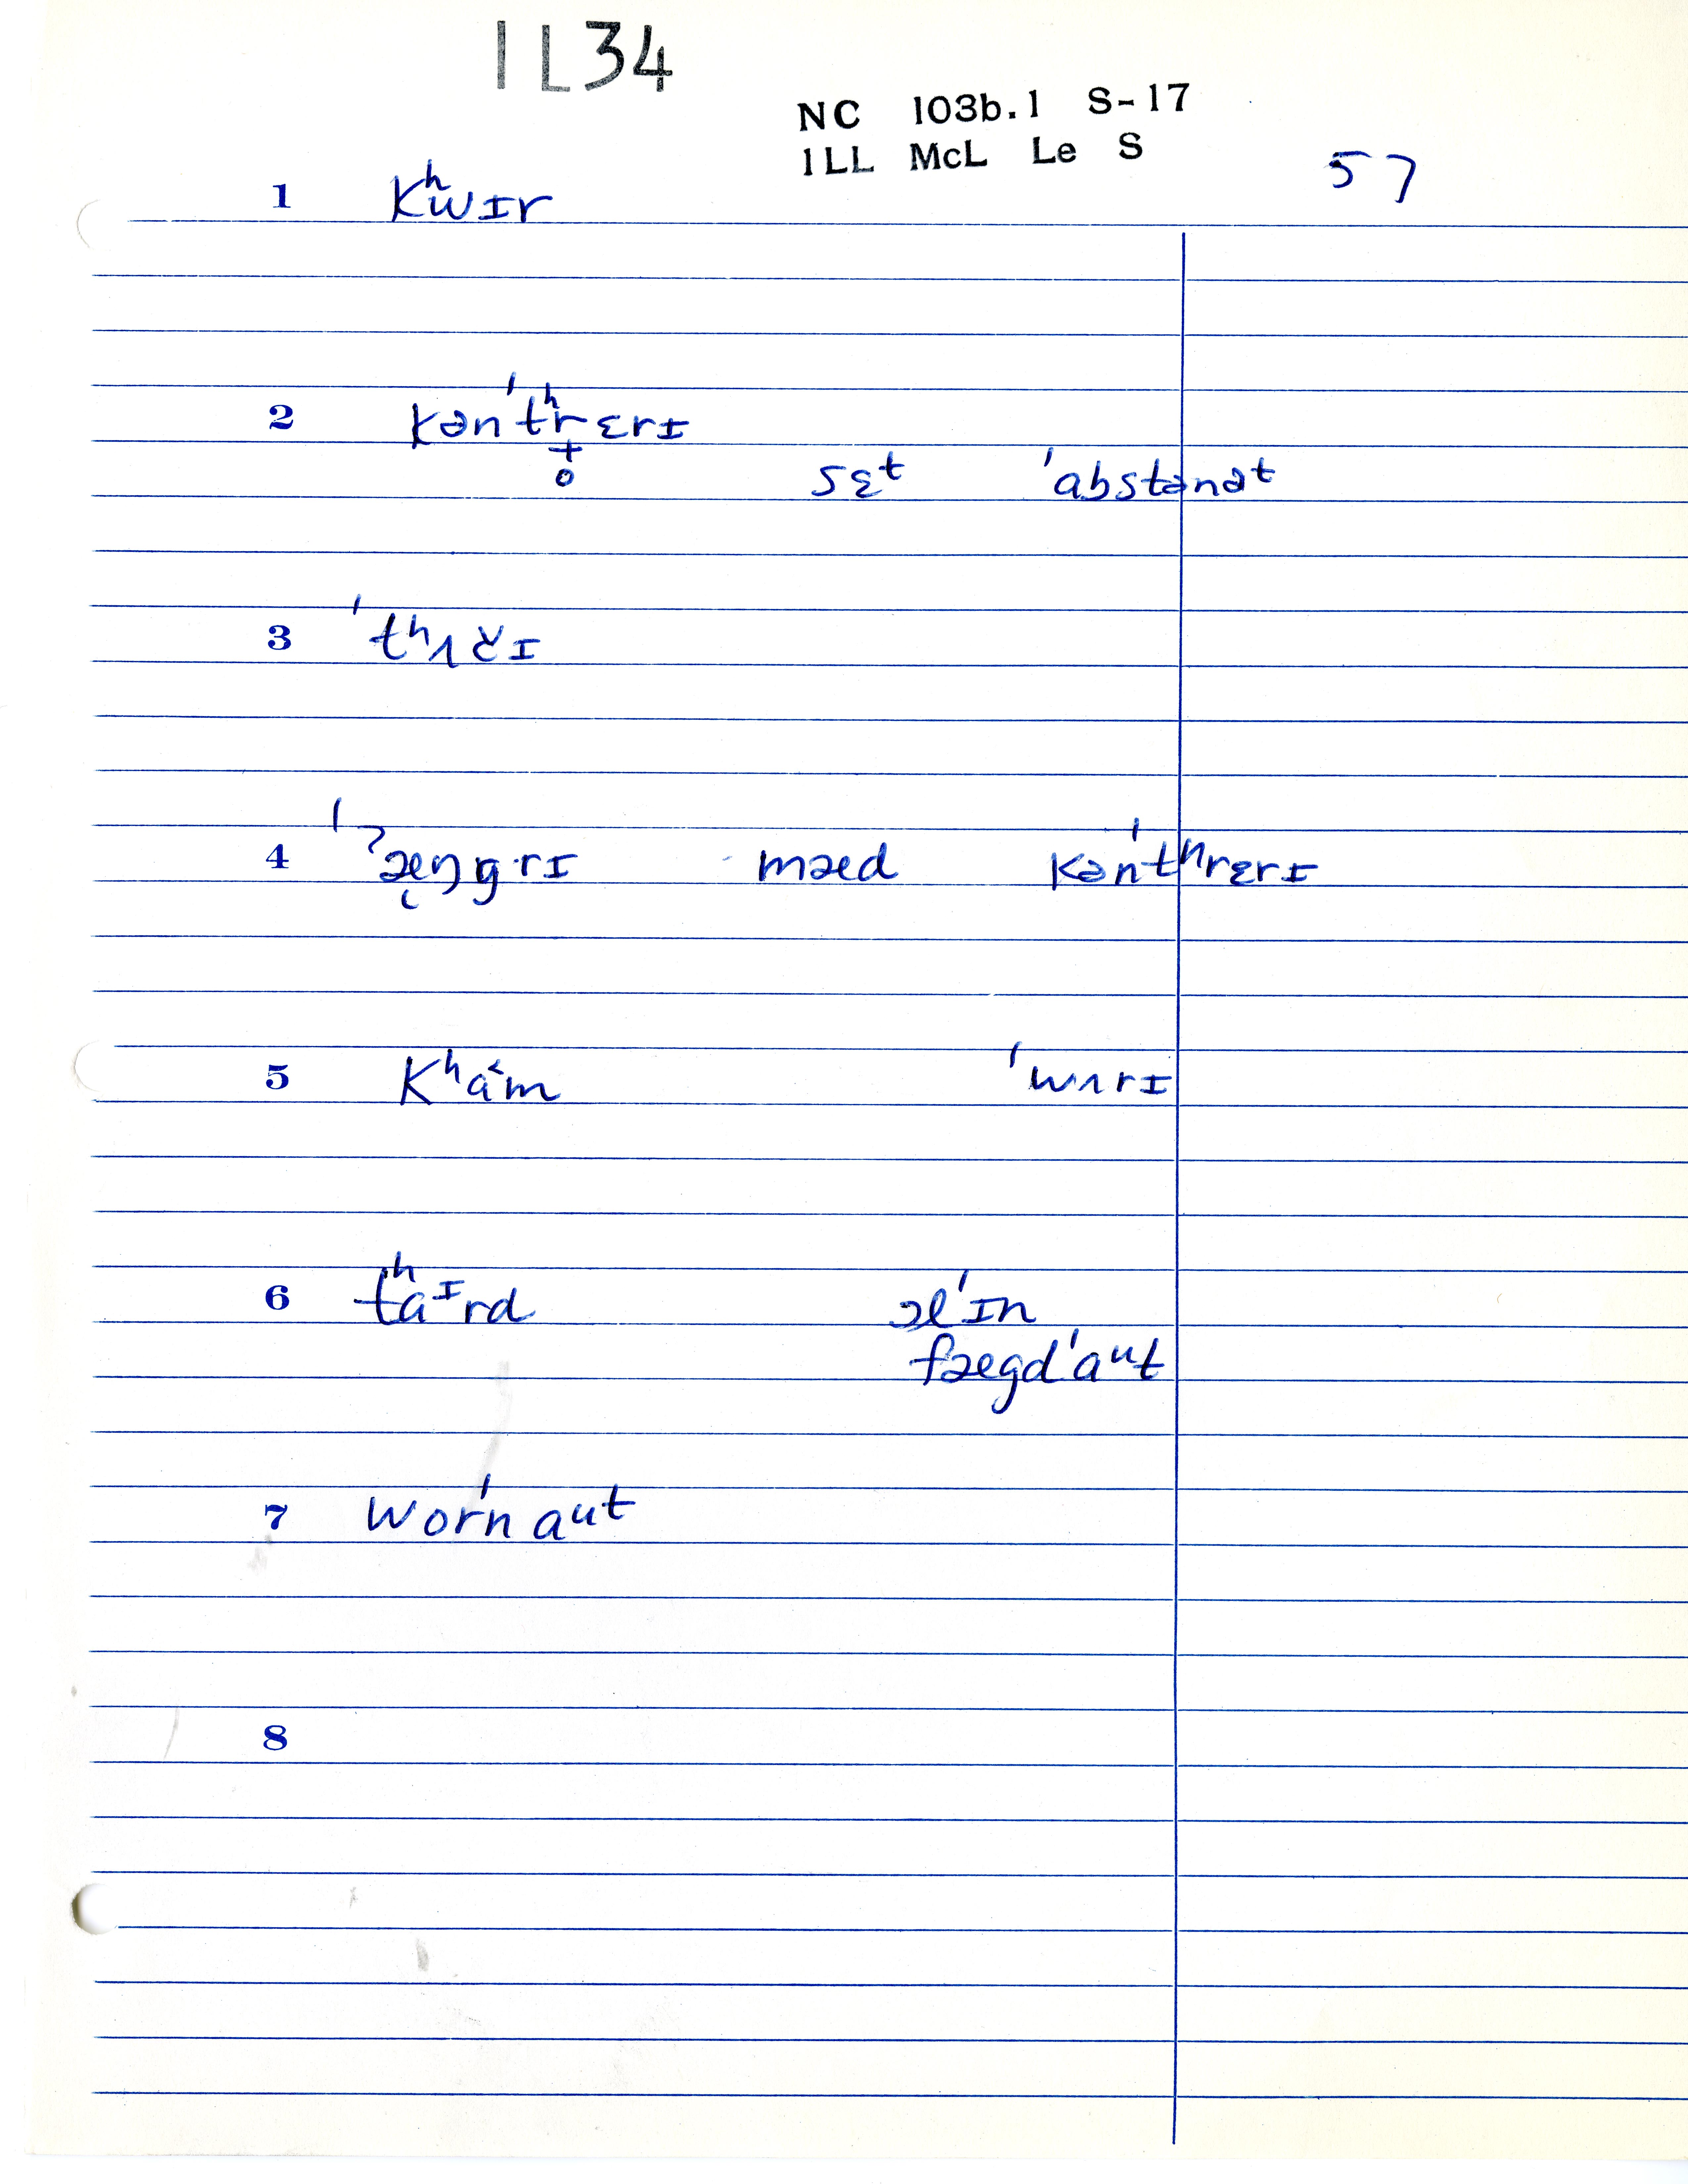 1L34
NC 103b.1 S-17
1LL McL Le S
57
1 kʰwɪr
2 kən'tʰr̥ɛrɪ
sɛᵗ 'abstənət
3
4 'ʔæŋgrɪ mæd kən'tʰrɛrɪ
5 kʰa˂m 'wʌrɪ
6 tʰaᶦrd ɔl'ɪn
fægd'aᵘt
7 wor'naᵘt
8